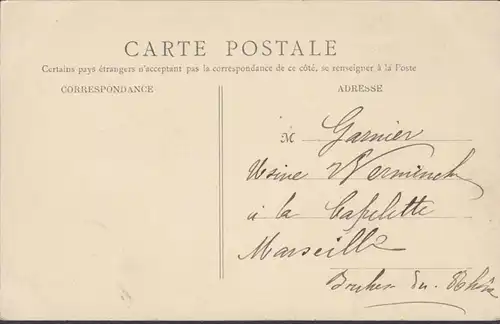 CARTE POSTALE
Certains pays étrangers n'acceptant pas la correspondance de ce côté, se renseigner à la Poste
CORRESPONDANCE
ADRESSE
M Garnier
Usine Verminck
à la Capelette
Marseille
Bouches du Rhône